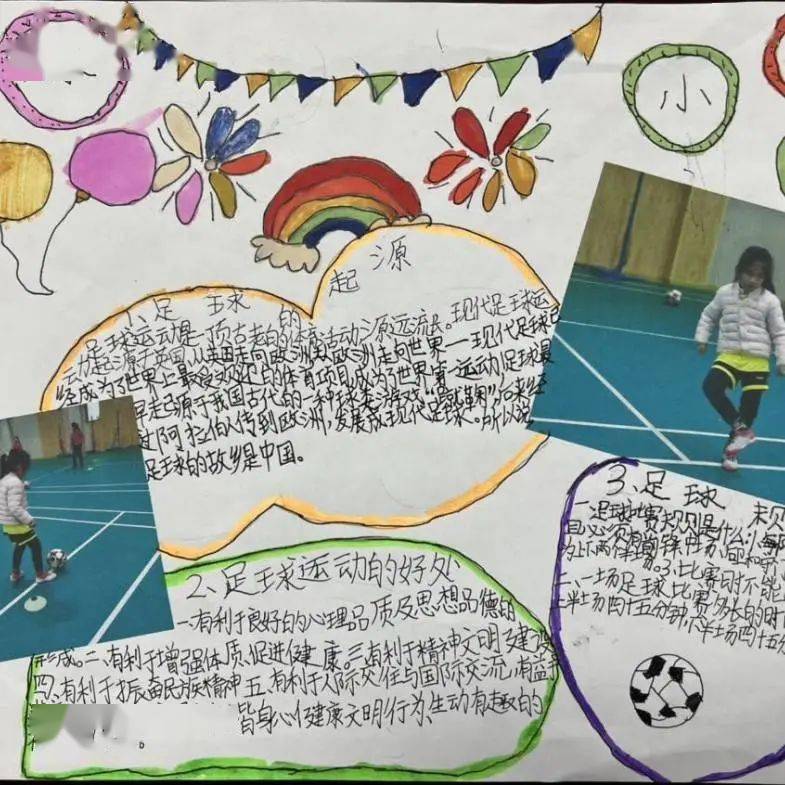 小
1、足球的起源
足球运动是一项古老的体育活动源远流长。现代足球运
动起源于英国,从英国走向欧洲从欧洲走向世界——现代足球已
经成为了世界上最受欢迎的体育项目成为了世界第一运动足球最
早起源于我国古代的一种球类游戏“蹴鞠”后来经
过阿拉伯人传到欧洲,发展成现代足球。所以说,
足球的故乡是中国。
2、足球运动的好处
一、有利于良好的心理品质及思想品德的
形成。二、有利于增强体质促进健康。三、有利于精神文明建设
四、有利于振奋民族精神五、有利于人际交往与国际交流,有益
皆身心健康文明行为、生动有趣的
。
3、足球 规
一、足球比赛规则是什么:
二、一场足球比赛
上半场四十五分钟下半场四十五分